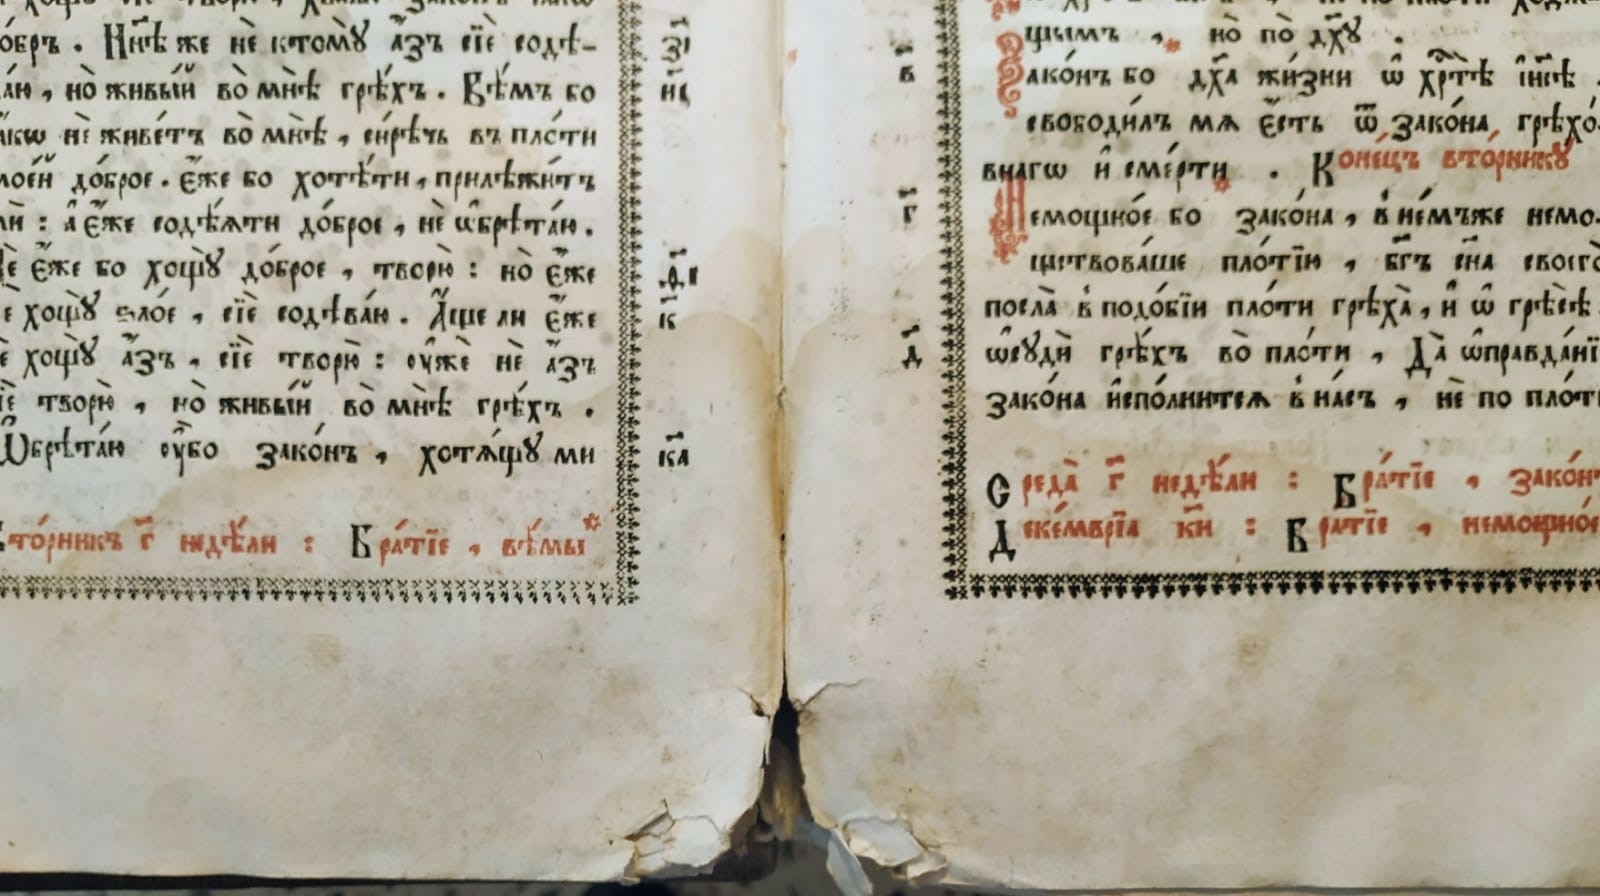 добръ. Нн҃ѣ же не ктомꙋ̀ а҆́зъ сїѐ содѣ-
но̀ живы́й во мнѣ̀ грѣ́хъ. Вѣ́мъ бо
не живе́тъ во мнѣ̀, си́рѣчь въ пло́ти
мое́й до́брое. є҆́же бо хотѣ́ти, прилѣжи́тъ
ми: а҆ є҆́же содѣ́ѧти до́брое, не ѡ҆брѣта́ю.
Не є҆́же бо хощꙋ̀ до́брое, творю̀: но̀ є҆́же
не хощꙋ̀ ѕло́е, сїѐ содѣва́ю. А҆́ще ли є҆́же
не хощꙋ̀ а҆́зъ, сїѐ творю̀: ᲂу҆жѐ не а҆́зъ
сїѐ творю̀, но̀ живы́й во мнѣ̀ грѣ́хъ.
Ѡ҆брѣта́ю ᲂу҆̀бо зако́нъ, хотѧ́щꙋ ми
вто́рникъ г҃ недѣ́ли: Бра́тїе, вѣ́мы*
з҃і
и҃і
к҃
к҃а
щымъ, * но̀ по дх҃ꙋ.
Зако́нъ бо дх҃а жи́зни ѡ҆ хрⷭ҇тѣ̀ і҆и҃сѣ.
свободи́лъ мѧ є҆́сть ѿ зако́на грѣхо́-
внагѡ и҆ сме́рти. * Коне́цъ вто́рникꙋ
Немощно́е бо зако́на, в не́мъже немо-
ществова́ше пло́тїю, бг҃ъ сн҃а своего̀
посла̀ в подо́бїи пло́ти грѣха̀, и҆ ѡ҆ грѣсѣ̀
ѡ҆сꙋдѝ грѣ́хъ во пло́ти, Да̀ ѡ҆правда́нї
зако́на и҆спо́лнитсѧ в на́съ, не по пло́ти
в҃
г҃
д҃
Среда̀ г҃ недѣ́ли: Бра́тїе, зако́нъ
Декемврі́а к҃и: Бра́тїе, немощно́е